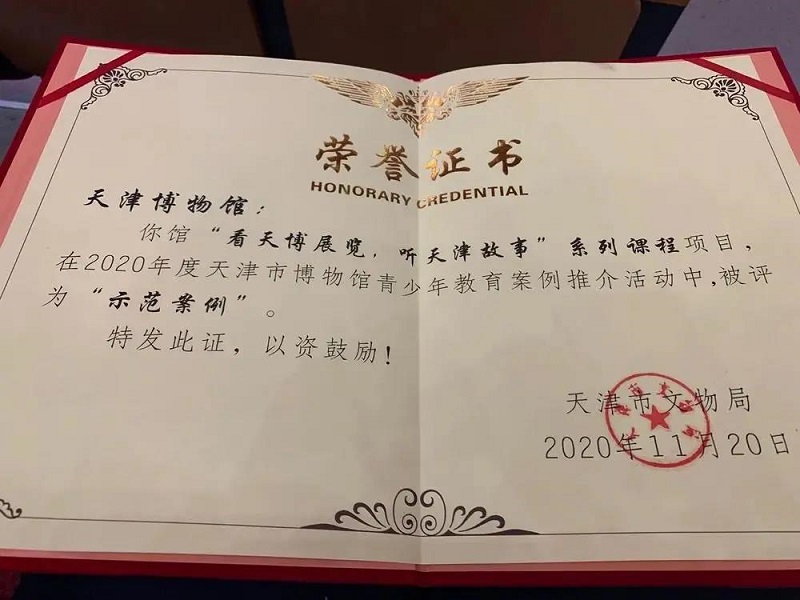 荣誉证书
HONORARY CREDENTIAL
天津博物馆：
你馆“看天博展览，听天津故事”系列课程项目，
在2020年度天津市博物馆青少年教育案例推介活动中,被评
为“示范案例”。
特发此证，以资鼓励！
天津市文物局
2020年11月20日